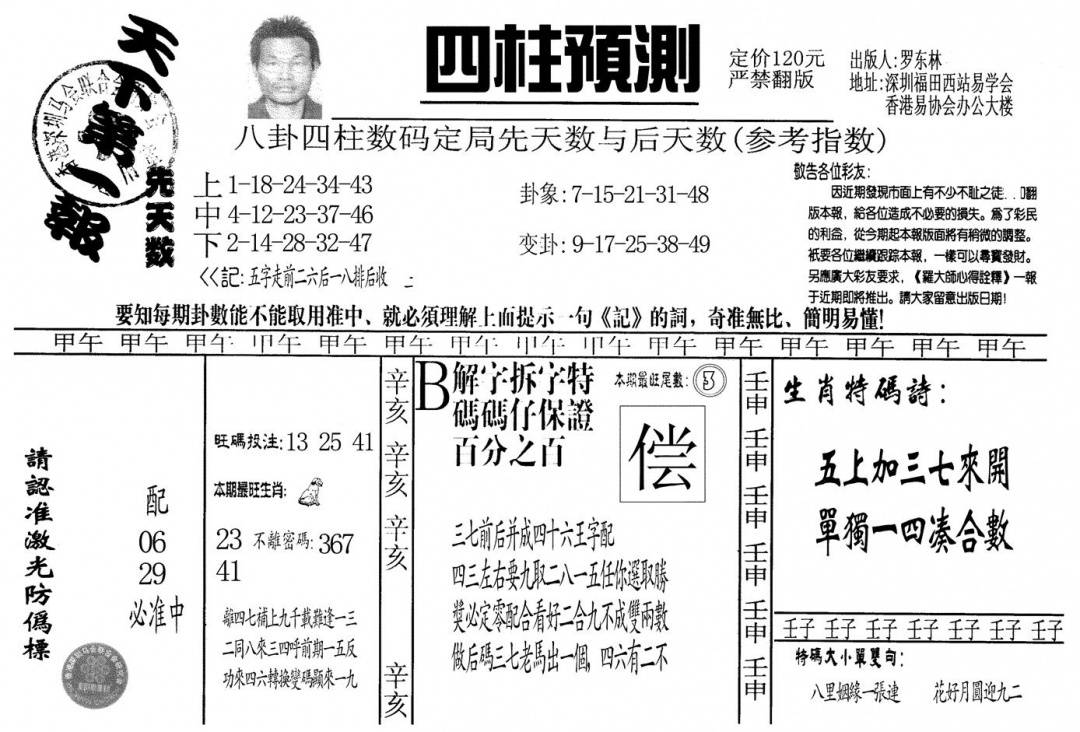 天下第一報
四柱預測
定价120元
严禁翻版
出版人:罗东林
地址:深圳福田西站易学会
香港易协会办公大楼
八卦四柱数码定局先天数与后天数(参考指数)
先天数
上 1-18-24-34-43
中 4-12-23-37-46
下 2-14-28-32-47
卦象:7-15-21-31-48
变卦:9-17-25-38-49
<<記:五字走前二六后一八排后收
敬告各位彩友:
因近期發現市面上有不少不耻之徒...翻
版本報，給各位造成不必要的損失。爲了彩民
的利益，從今期起本報版面將有稍微的調整。
衹要各位繼續跟踪本報，一樣可以尋寶發財。
另應廣大彩友要求，《羅大師心得詮釋》一報
于近期即將推出。請大家留意出版日期!
要知每期卦數能不能取用准中、就必須理解上面提示一句《記》的詞，奇准無比、簡明易懂!
甲午 甲午 甲午 甲午 甲午 甲午 甲午 甲午 甲午 甲午 甲午 甲午 甲午 甲午 甲午
請認准激光防僞標
配
06
29
必准中
旺碼投注:13 25 41
本期最旺生肖:
23 不離密碼:367
41
離四七補上九千載難逢一三
二同八來三四呼前期一五反
功來四六轉換變碼顯來一九
辛亥 辛亥 辛亥 辛亥
B解字拆字特
碼碼仔保證
百分之百
本期最旺尾數:3
偿
三七前后并成四十六王字配
四三左右要九取二八一五任你選取勝
獎必定零配合看好二合九不成雙兩數
做后碼三七老馬出一個，四六有二不
壬申 壬申 壬申 壬申 壬申 壬申
生肖特碼詩:
五上加三七來開
單獨一四凑合數
壬子 壬子 壬子 壬子 壬子 壬子 壬子
特碼大小單雙句:
八里姻緣一張連 花好月圓迎九二